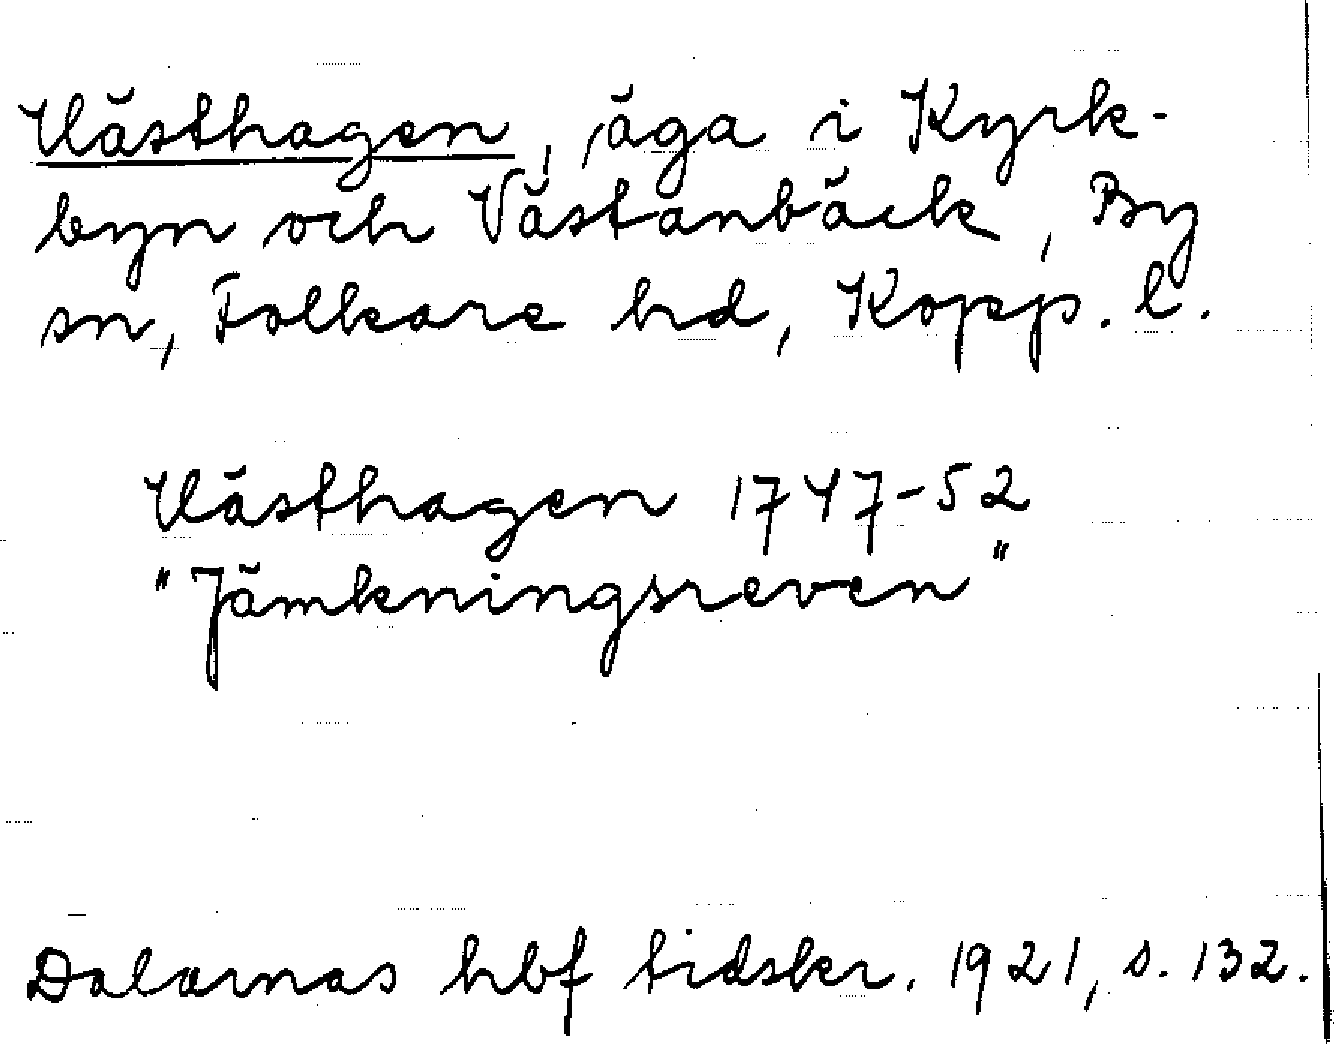 Västhagen, äga i Kyrk-
byn och Västanbäck, By
sn, Folkare hd, Kopp. l.
Västhagen 1747-52
"Jämkningsreven"
Dalarnas hbf tidskr. 1921, s. 132.